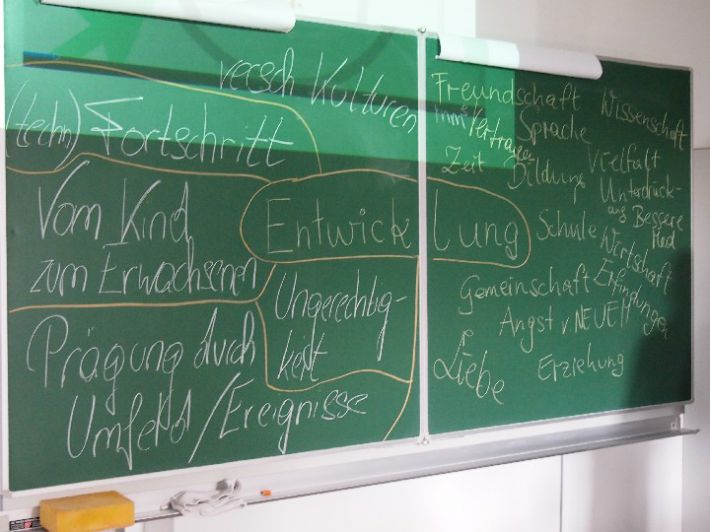 versch Kulturen
(techn) Fortschritt
Vom Kind
zum Erwachsenen
Entwicklung
Ungerechtig-
keit
Prägung durch
Umfeld/Ereignisse
Freundschaft
Wissenschaft
Vertrauen
Sprache
Zeit
Bildung
Vielfalt
Unterdrück-
ung
Bessere
Schule
Wirtschaft
Gemeinschaft
Erfindungen
Angst v NEUEM
Liebe
Erziehung